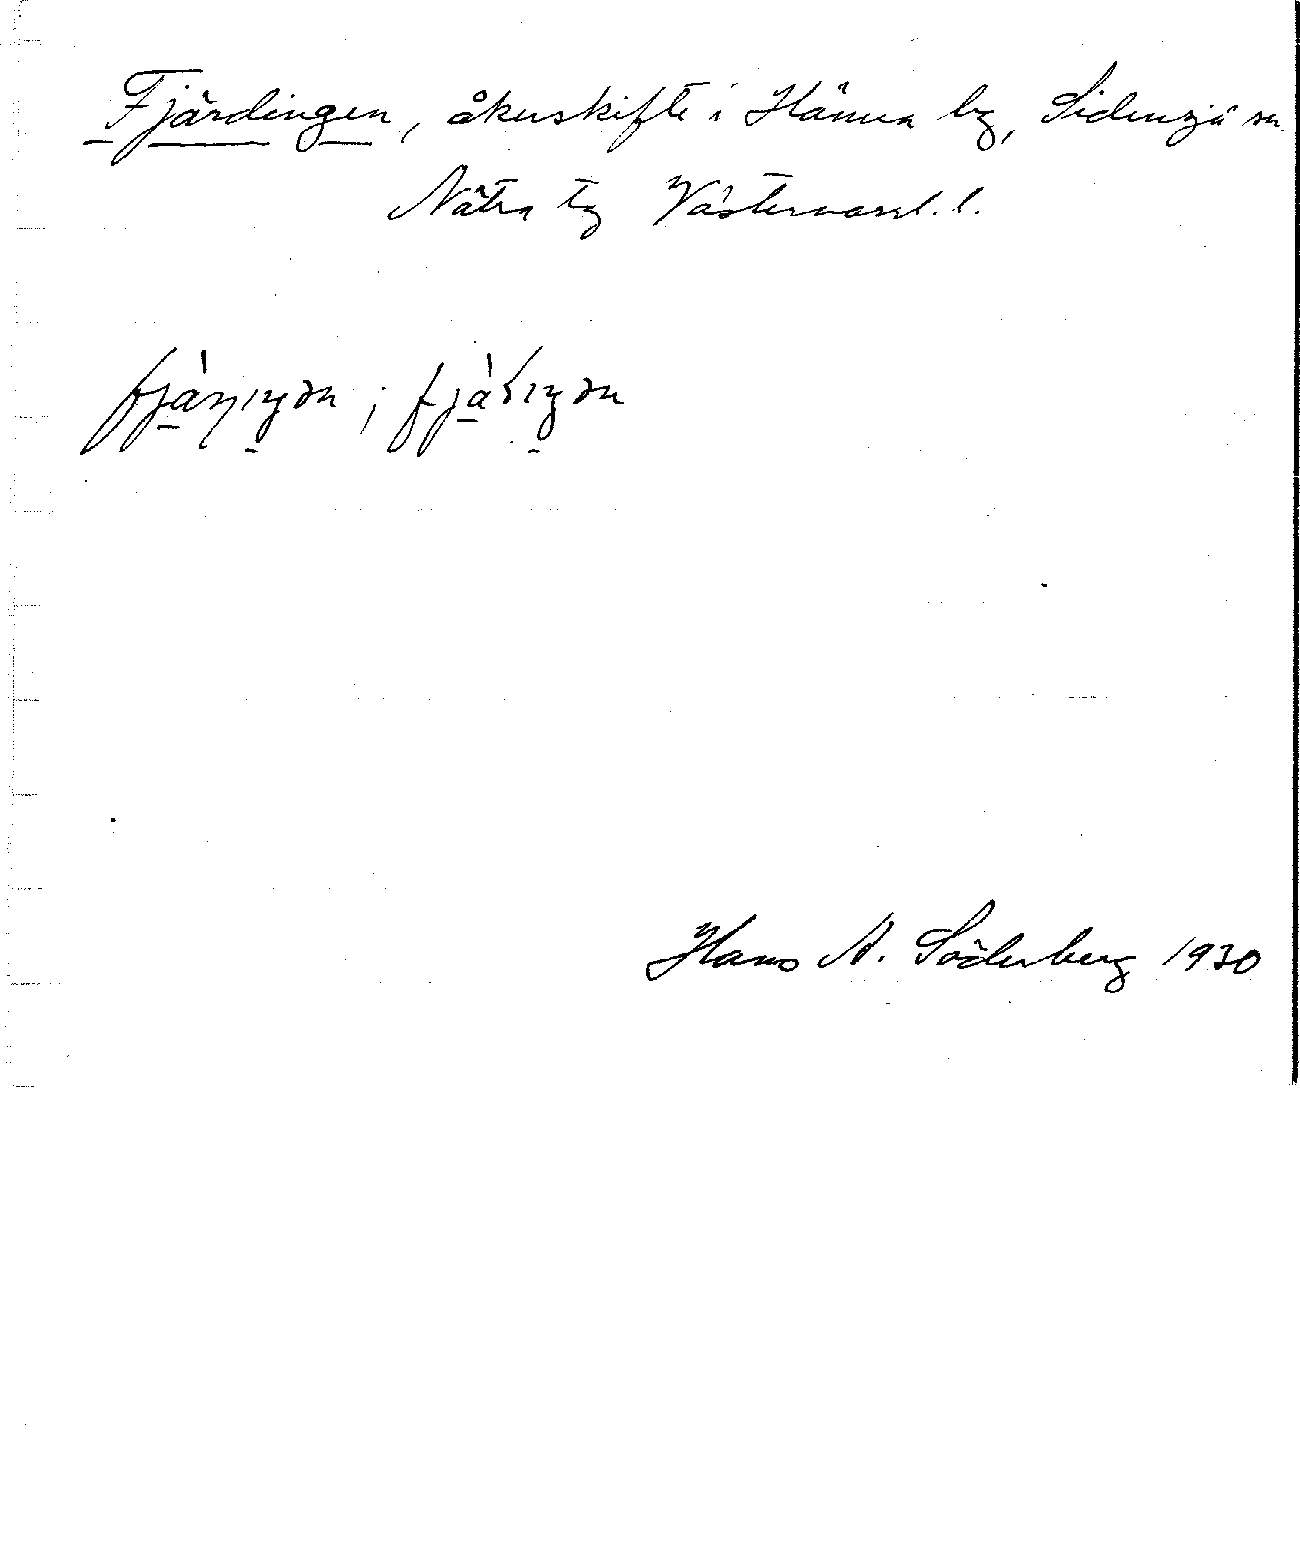 Fjärdingen, åkerskifte i Hämra by, Sidensjö sn
Nätra tg Västernorrl. l.
Hans A. Söderberg 1930